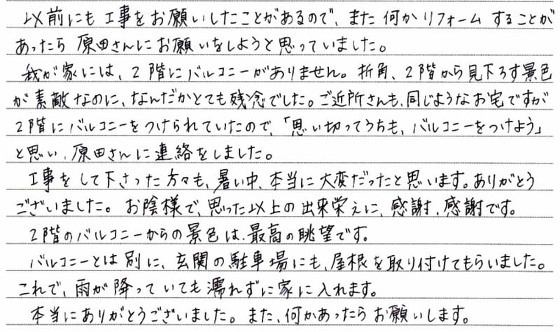 以前にも工事をお願いしたことがあるので、また何かリフォームすることが
あったら原田さんにお願いなしようと思っていました。
我が家には、2階にバルコニーがありません。折角、2階から見下ろす景色
が素敵なのに、なんだかとても残念でした。ご近所さんも、同じようなお宅ですが
2階にバルコニーをつけられていたので、「思い切ってうちも、バルコニーをつけよう」
と思い、原田さんに連絡をしました。
工事をして下さった方々も、暑い中、本当に大変だったと思います。ありがとう
ございました。お陰様で、思った以上の出来栄えに、感謝、感謝です。
2階のバルコニーからの景色は、最高の眺望です。
バルコニーとは別に、玄関の駐車場にも、屋根を取り付けてもらいました。
これで、雨が降っていても濡れずに家に入れます。
本当にありがとうございました。また、何かあったらお願いします。